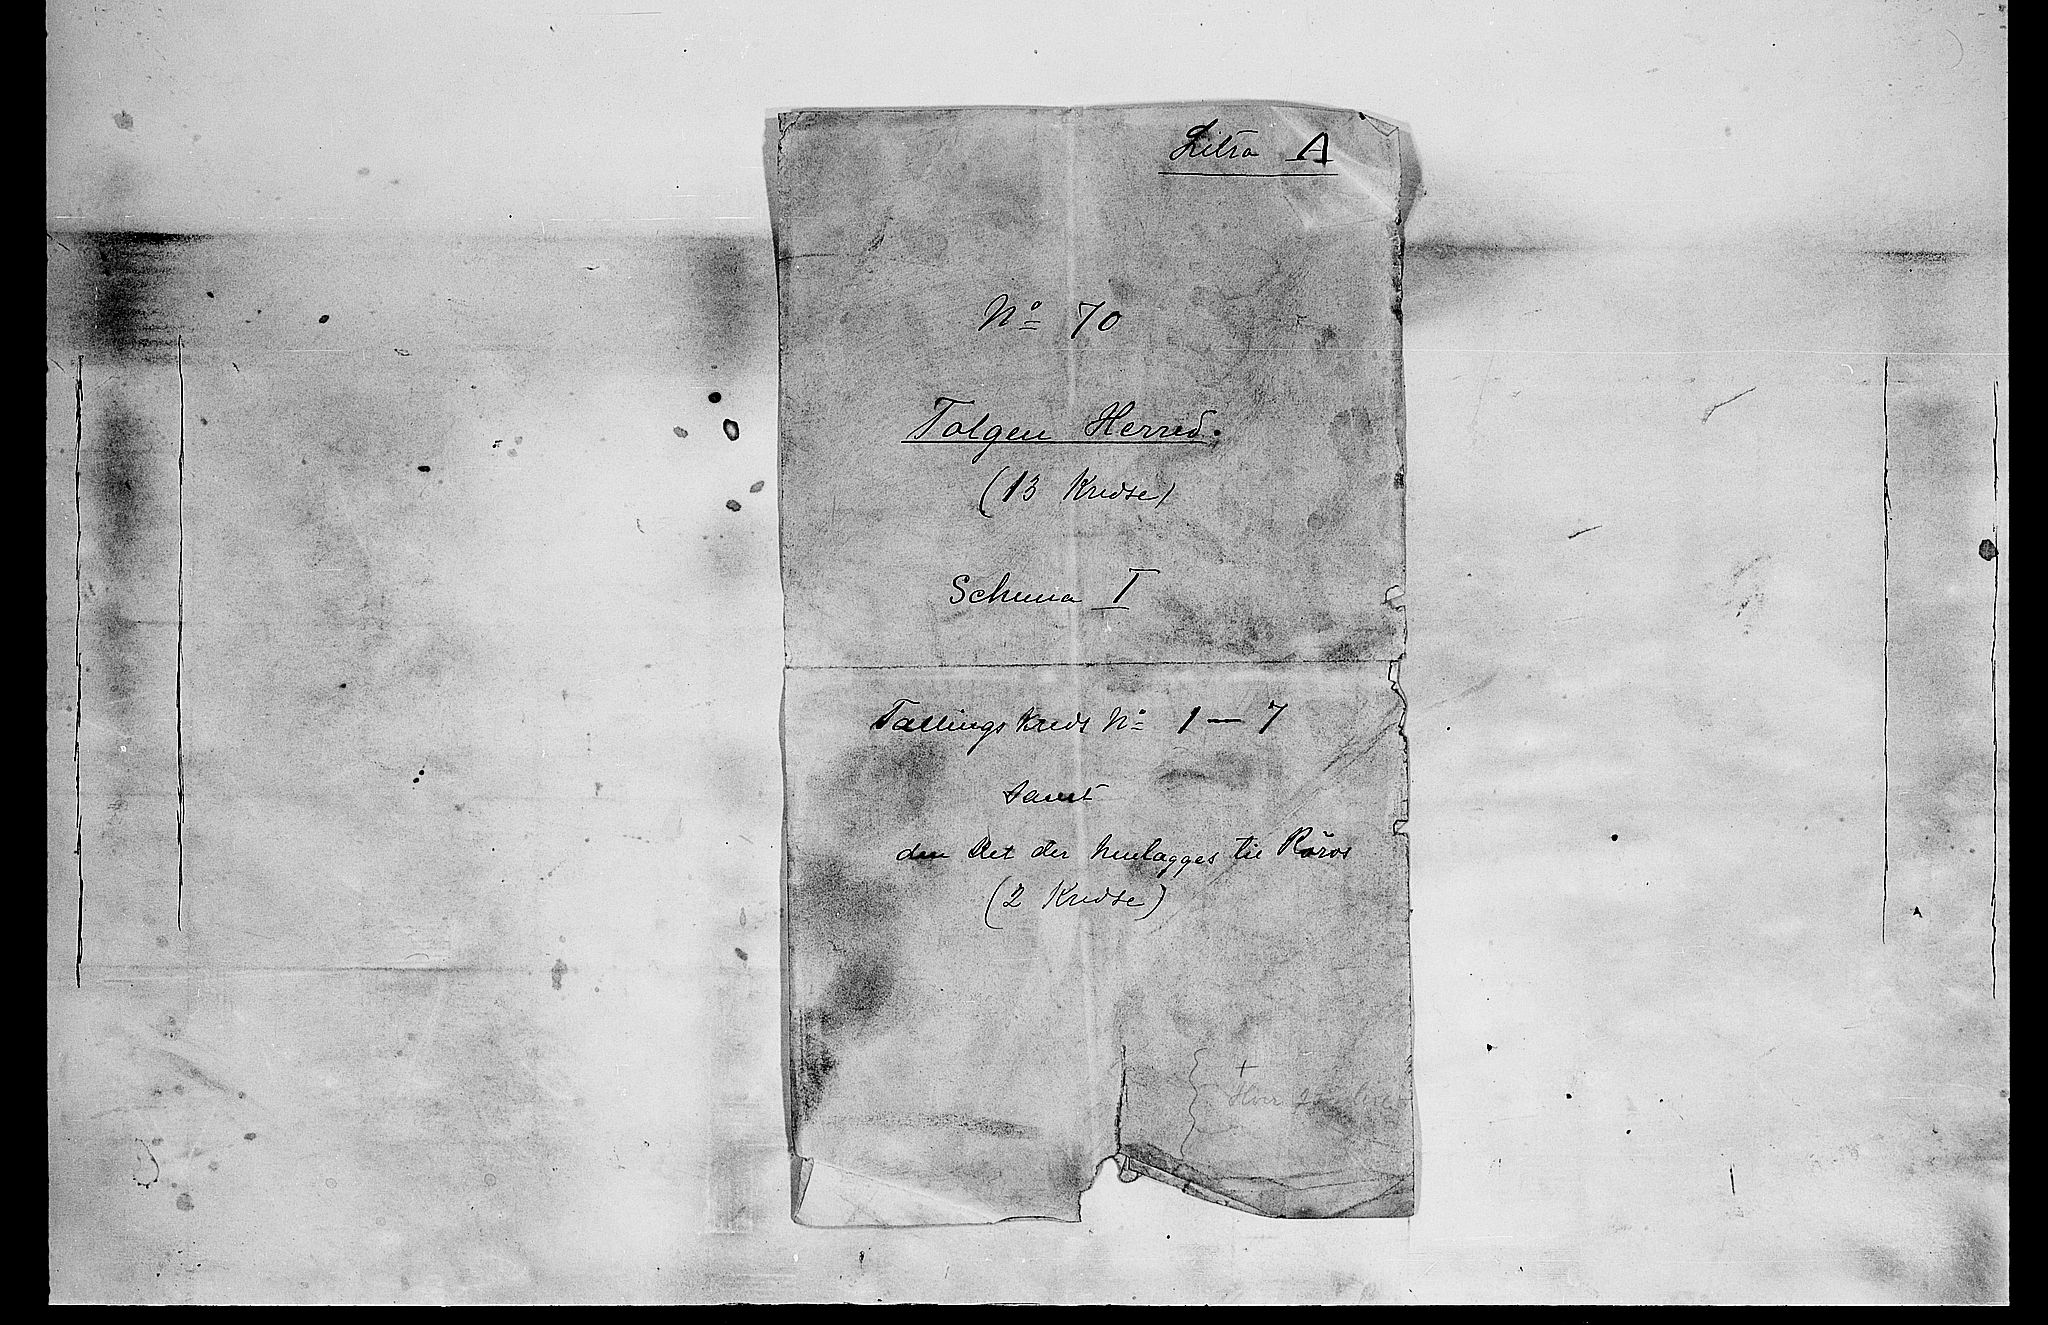 Litra A
No 70
Tolgen Herred.
(13 Kredse)
Schema I
Tællingskreds No 1 — 7
samt
den Del der henlægges til Röros
(2 Kredse)
+
Hver